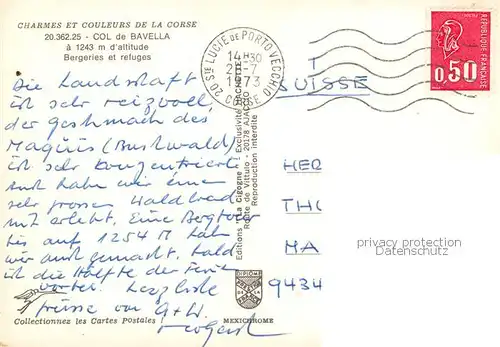 CHARMES ET COULEURS DE LA CORSE
20.362.25 - COL de BAVELLA
à 1243 m d'altitude
Bergeries et refuges
Die Landschaft
ist sehr reizvoll,
der geschmach des
Maquis (Buschwald)
ist sehr konzentriert
auch haben wir eine
sehr grossen Waldbrand
mit erlebt. Eine Bergtour
bis auf 1254 M hab
wir auch gemacht. bald
ist die Hälfte der Ferien
vorbei. Herzliche
grüsse von G+W.
Collectionnez les Cartes Postales !
MEXICHROME
DIPLOME
Editions "La Cigogne" - Exclusivité
Route de Vittulo - 20178 AJACCIO
Reproduction interdite
20 STE LUCIE DE PORTO-VECCHIO
14H30
1973
CORSE
REPUBLIQUE FRANÇAISE
0,50
T
SUISSE
HER
THI
MA
9434
privacy protection
Datenschutz